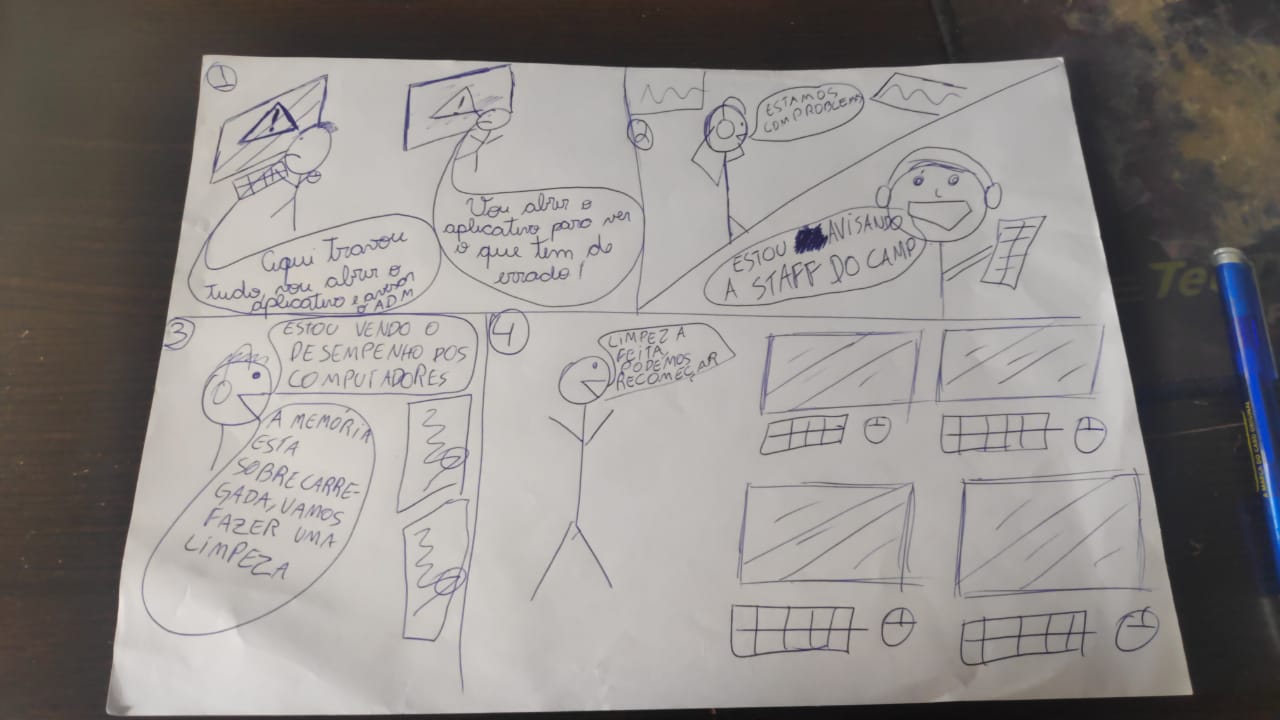 1
Aqui travou
tudo, vou abrir o
aplicativo e avisar
o ADM
Vou abrir o
aplicativo para ver
o que tem de
errado!
2
ESTAMOS
COM PROBLEMAS
ESTOU AVISANDO
A STAFF DO CAMP
3
ESTOU VENDO O
DESEMPENHO DOS
COMPUTADORES
A MEMÓRIA
ESTA
SOBRECARRE-
GADA, VAMOS
FAZER UMA
LIMPEZA
4
LIMPEZA
FEITA,
PODEMOS
RECOMEÇAR